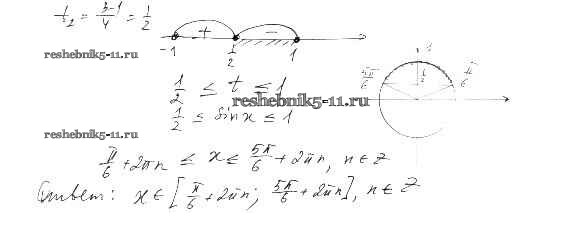 t₂ = (3-1)/4 = 1/2
-1 + 1/2 - 1
reshebnik5-11.ru
1/2 ≤ t ≤ 1
5π/6 1/2 π/6
reshebnik5-11.ru
1/2 ≤ sin x ≤ 1
reshebnik5-11.ru
π/6 + 2πn ≤ x ≤ 5π/6 + 2πn, n ∈ Z
Ответ: x ∈ [π/6 + 2πn; 5π/6 + 2πn], n ∈ Z